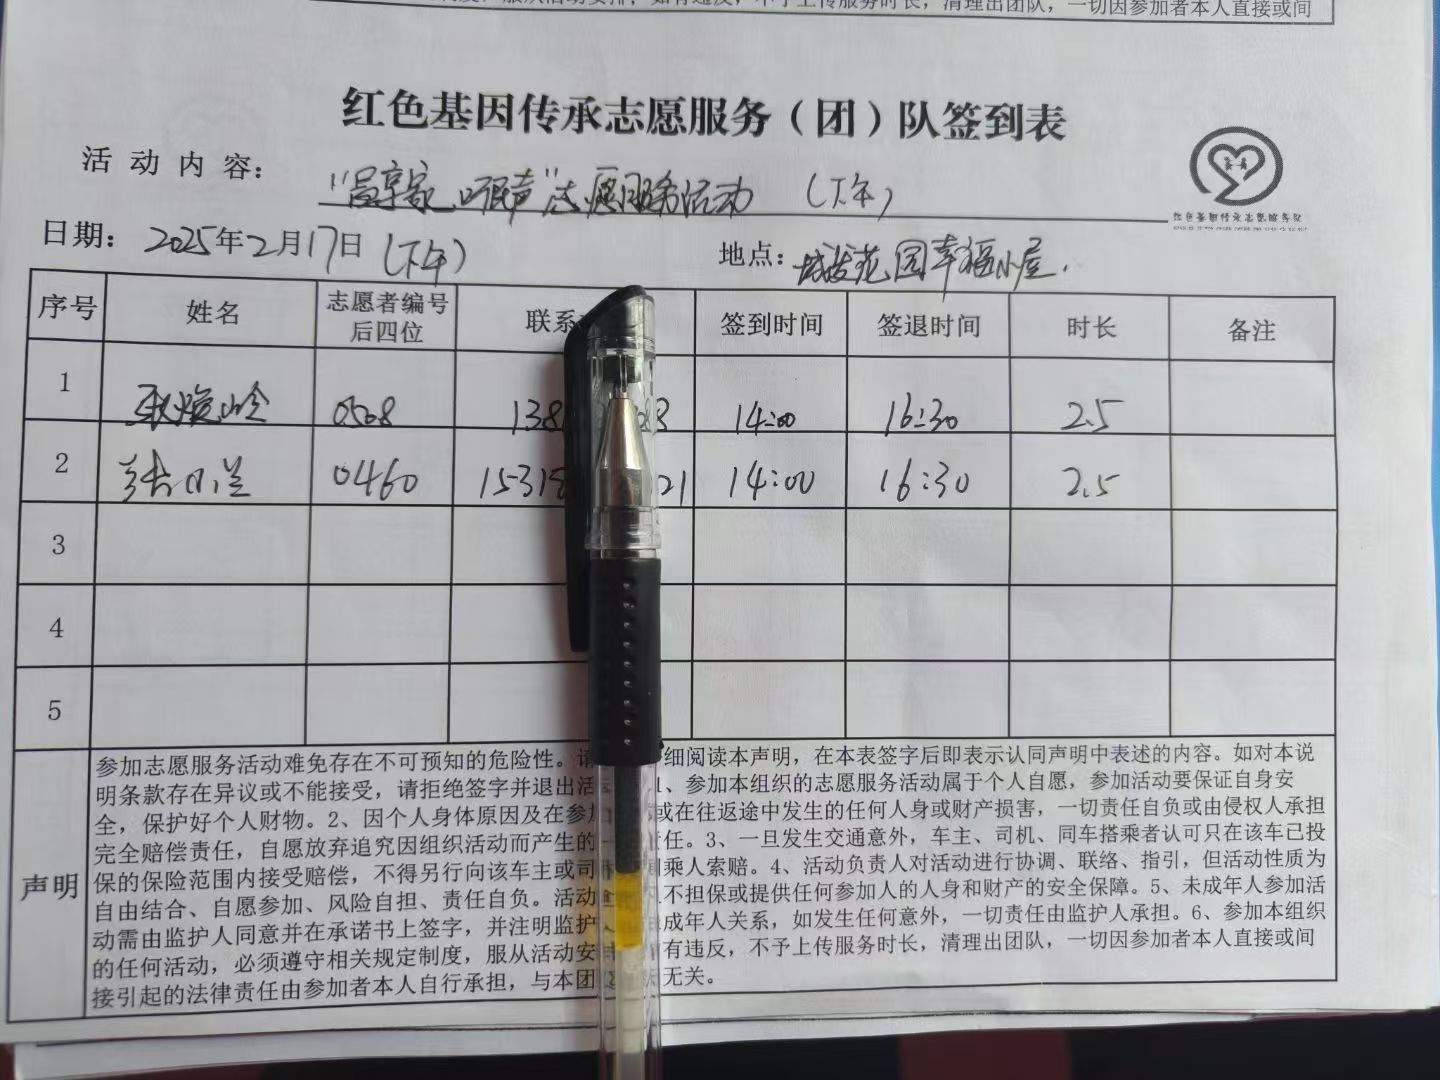 一切因参加者本人直接或间
红色基因传承志愿服务（团）队签到表
活动内容： 志愿服务活动 （下午）
日期： 2025年2月17日（下午） 地点： 城投花园幸福小屋.
序号 姓名 志愿者编号后四位 联系 签到时间 签退时间 时长 备注
1 0508 138 83 14:00 16:30 2.5
2 张小兰 0460 15318 21 14:00 16:30 2.5
3
4
5
声明
参加志愿服务活动难免存在不可预知的危险性。请 细阅读本声明，在本表签字后即表示认同声明中表述的内容。如对本说
明条款存在异议或不能接受，请拒绝签字并退出活 1、参加本组织的志愿服务活动属于个人自愿，参加活动要保证自身安
全，保护好个人财物。2、因个人身体原因及在参加 或在往返途中发生的任何人身或财产损害，一切责任自负或由侵权人承担
完全赔偿责任，自愿放弃追究因组织活动而产生的一 责任。3、一旦发生交通意外，车主、司机、同车搭乘者认可只在该车已投
保的保险范围内接受赔偿，不得另行向该车主或司 乘人索赔。4、活动负责人对活动进行协调、联络、指引，但活动性质为
自由结合、自愿参加、风险自担、责任自负。活动 不担保或提供任何参加人的人身和财产的安全保障。5、未成年人参加活
动需由监护人同意并在承诺书上签字，并注明监护 成年人关系，如发生任何意外，一切责任由监护人承担。6、参加本组织
的任何活动，必须遵守相关规定制度，服从活动安 有违反，不予上传服务时长，清理出团队，一切因参加者本人直接或间
接引起的法律责任由参加者本人自行承担，与本团 无关。